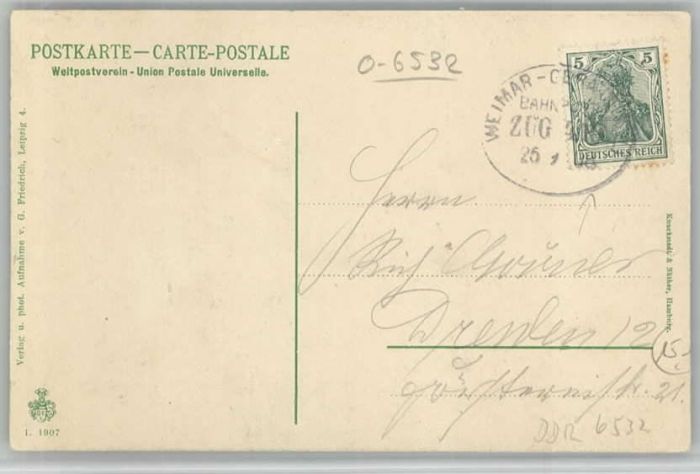 POSTKARTE — CARTE-POSTALE
Weltpostverein - Union Postale Universelle.
O-6532
WEIMAR-GERA
BAHN
ZUG
25 1
5 5
DEUTSCHES REICH
Herrn
Rich Grüner
Dresden 12
21.
15.
DDR 6532
Verlag u. phot. Aufnahme v. G. Friedrich, Leipzig 4.
Knackstedt & Näther, Hamburg.
I. 1907